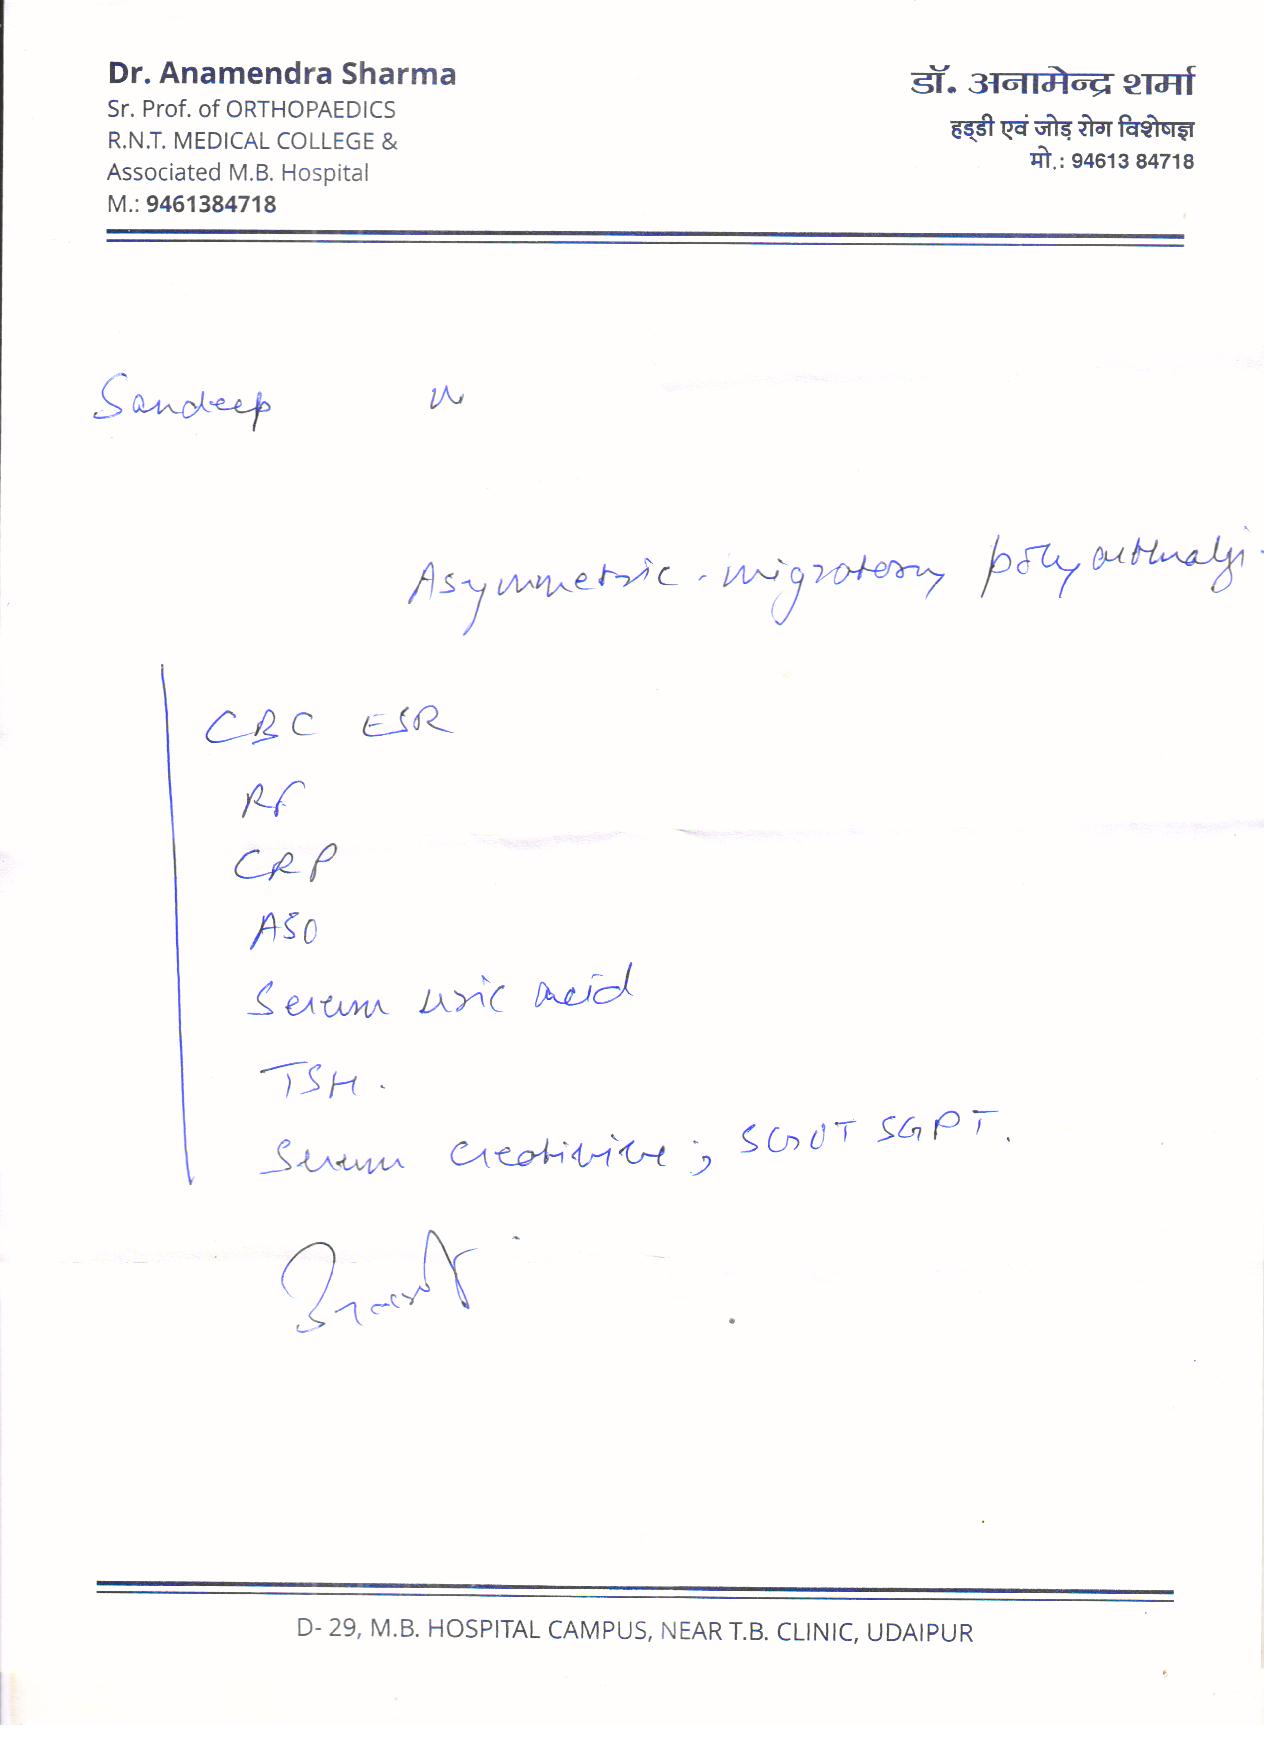 Dr. Anamendra Sharma
Sr. Prof. of ORTHOPAEDICS
R.N.T. MEDICAL COLLEGE &
Associated M.B. Hospital
M.: 9461384718
डॉ. अनामेन्द्र शर्मा
हड्डी एवं जोड़ रोग विशेषज्ञ
मो.: 94613 84718
Sandeep
Asymmetric - migratory polyarthralgi
CBC ESR
RF
CRP
ASO
Serum uric acid
TSH.
Serum creatinine; SGOT SGPT.
D- 29, M.B. HOSPITAL CAMPUS, NEAR T.B. CLINIC, UDAIPUR